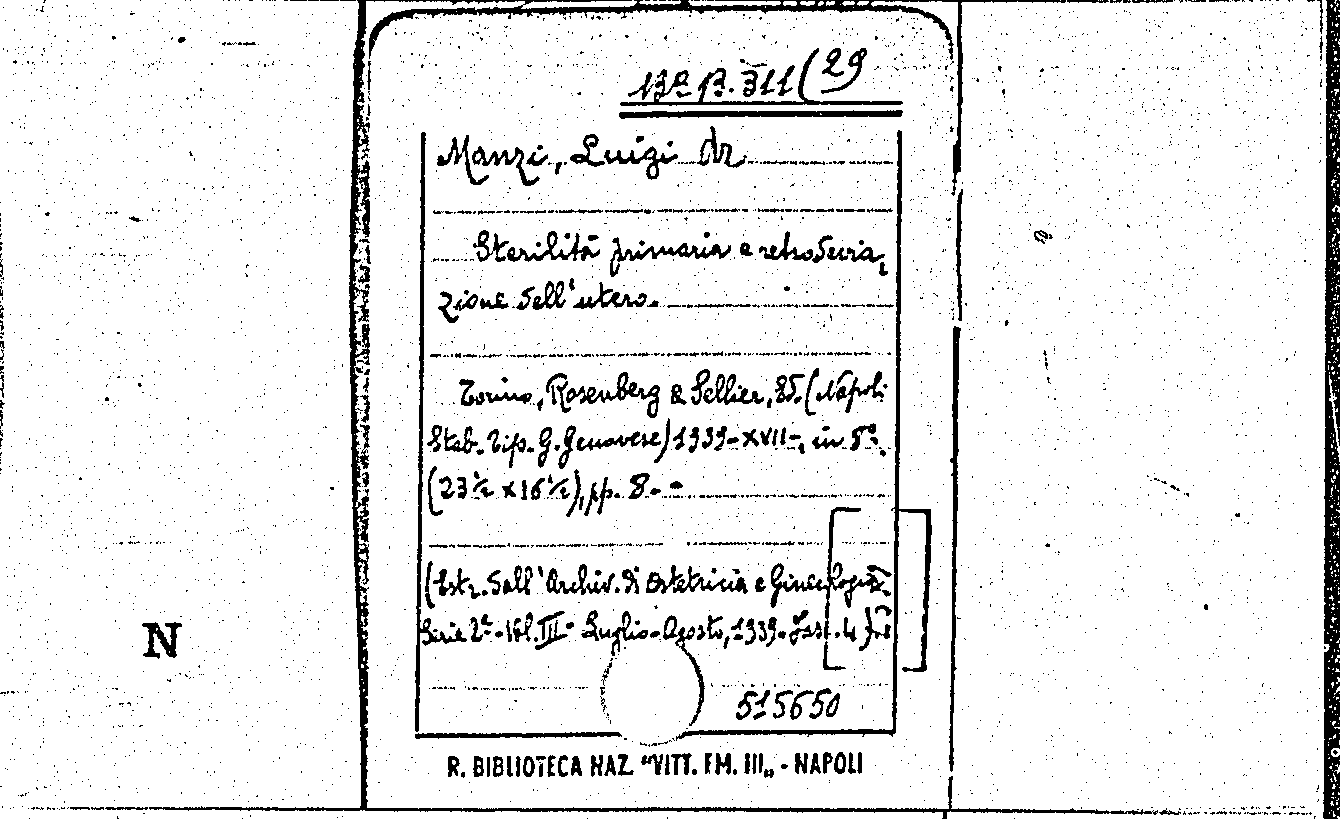 13ª B. 311 (29
Manzi, Luigi dr
Sterilità primaria e retrodevia,
zione dell'utero.
Torino, Rosenberg & Sellier, Ed. (Napoli
Stab. Tip. G. Genovese) 1939-XVII-, in 8º.
(23½ x 16½), pp. 8.-
(Estr. dall'Archiv. di Ostetricia e Ginecologia
Serie 2ª - Vol. III - Luglio-Agosto, 1939- Fasc. 4)
N
515650
R. BIBLIOTECA NAZ. "VITT. EM. III„ - NAPOLI